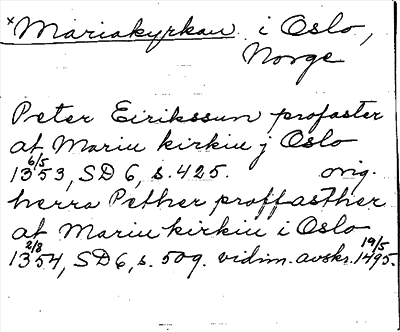 ×Mariakyrkan i Oslo,
Norge
Peter Eirikssun profaster
at Mariu kirkiu j Oslo
6/5
1353, SD 6, s. 425. orig.
herra Pether proffasther
at Mariu kirkiu i Oslo
2/8 19/5
1354, SD 6, s. 509. vidim. avskr. 1495.